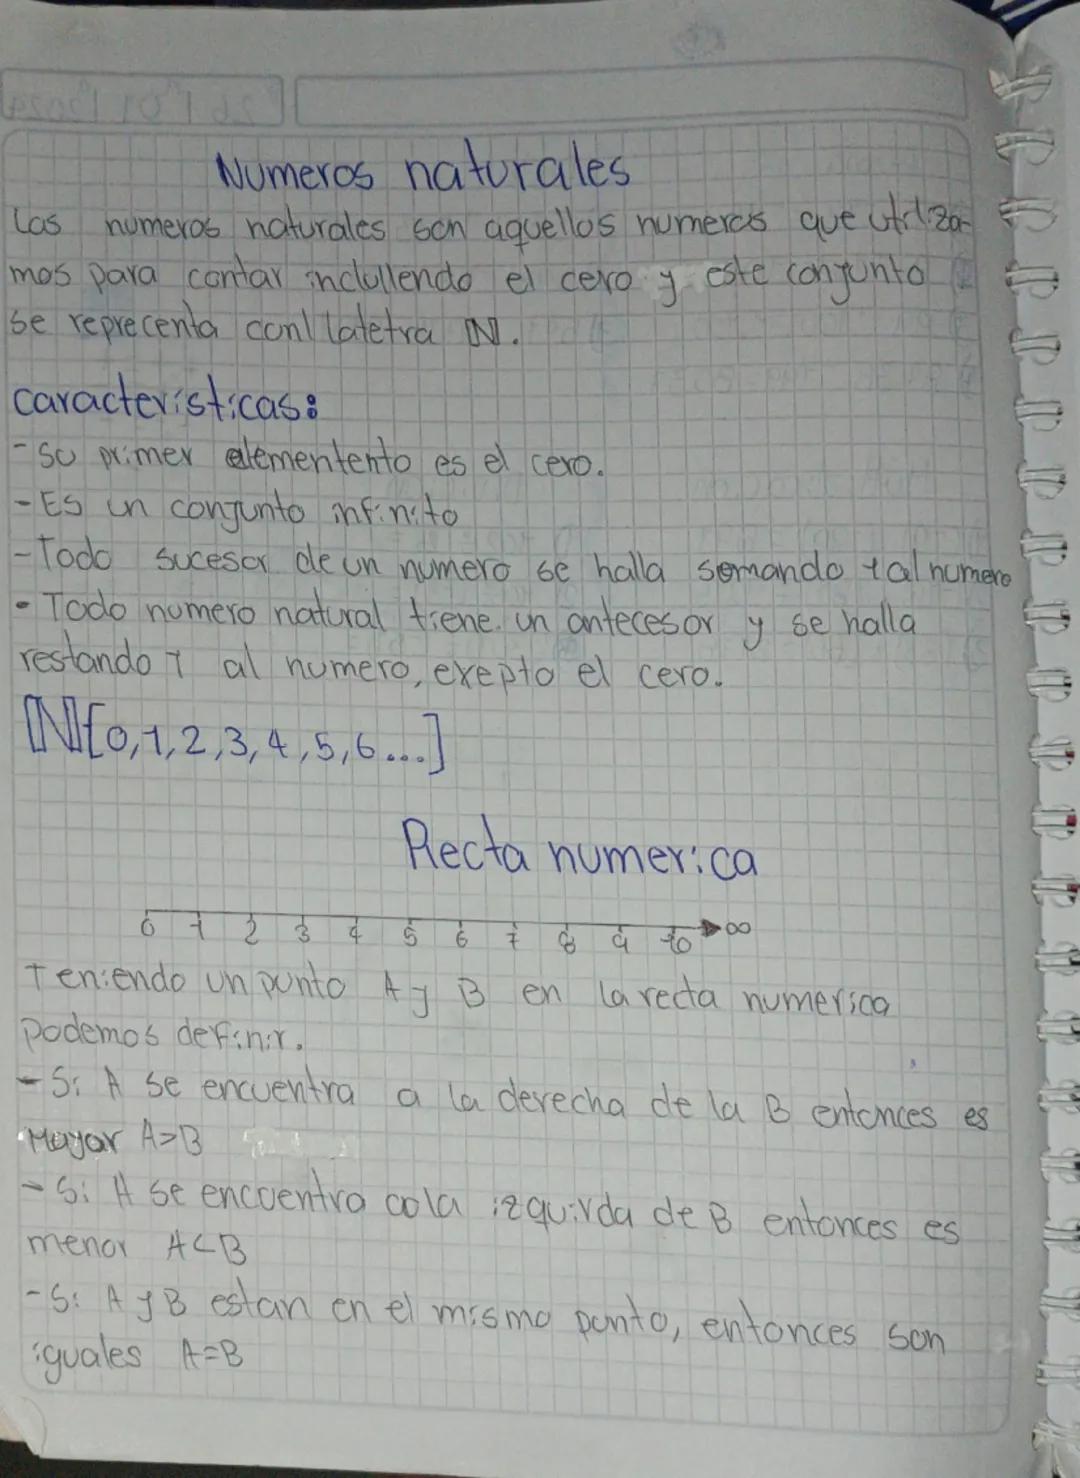 Numeros naturales
Los numeros naturales son aquellos numeros que utiliza-
mos para contar inclullendo el cero y este conjunto
se reprecenta con la letra ℕ.
caracteristicas:
- su primer elemententо es el cero.
- Es un conjunto infinito
- Todo sucesor de un numero se halla somando 1 al numero
- Todo numero natural tiene un antecesor y se halla
restando 1 al numero, exepto el cero.
ℕ{0,1,2,3,4,5,6...}
Recta numerica
0 1 2 3 4 5 6 7 8 9 10 ∞
Teniendo un punto A y B en la recta numerica
podemos definir.
- Si A se encuentra a la derecha de la B entonces es
Mayor A>B
- Si A se encuentra a la izquirda de B entonces es
menor A<B
- Si A y B estan en el mismo punto, entonces son
iguales A=B